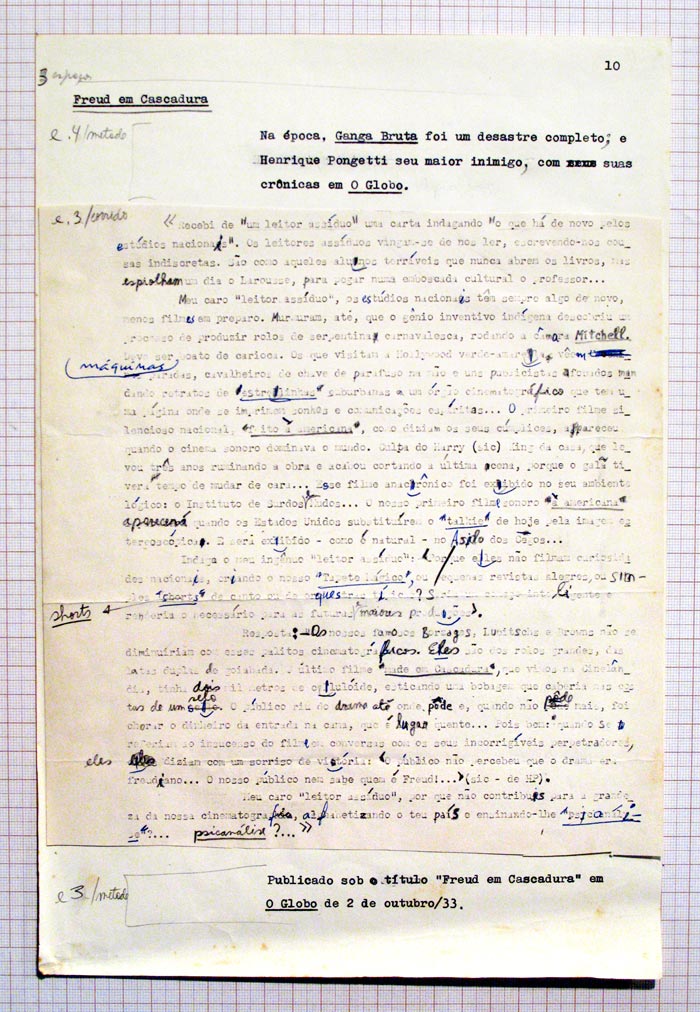 10
3 espaços
Freud em Cascadura
e.4/metade
Na época, Ganga Bruta foi um desastre completo; e
Henrique Pongetti seu maior inimigo, com seus suas
crônicas em O Globo.
e.3/corrido
«Recebi de "um leitor assíduo" uma carta indagando "o que há de novo pelos
estúdios nacionais". Os leitores assíduos vingam-se de nos ler, escrevendo-nos cou-
sas indiscretas. São como aqueles alunos terríveis que nunca abrem os livros, mas
espiolham um dia o Larousse, para pegar numa emboscada cultural o professor...
Meu caro "leitor assíduo", os estúdios nacionais têm sempre algo de novo,
menos filmes em preparo. Murmuram, até, que o gênio inventivo indígena descobriu um
processo de produzir rolos de serpentina carnavalesca, rodando a câmara Mitchell.
Deve ser boato de carioca. Os que visitam a Hollywood verde-amarela, vêem
máquinas paradas, cavalheiros de chave de parafuso na mão e uns publicistas afobados man
dando retratos de "estrelinhas" suburbanas a um órgão cinematográfico que tem u-
ma página onde se imprimem sonhos e comunicações espíritas... O primeiro filme si-
lencioso nacional, "feito à americana", como diziam os seus cúmplices, apareceu
quando o cinema sonoro dominava o mundo. Culpa do Harry (sic) King da casa, que le-
vou três anos ruminando a obra e acabou cortando a última cena, porque o galã ti-
vera tempo de mudar de cara... Esse filme anacrônico foi exibido no seu ambiente
lógico: o Instituto de Surdos Mudos... O nosso primeiro filme sonoro "à americana"
aparecerá quando os Estados Unidos substituírem o "talkie" de hoje pela imagem es
tereoscópica. E será exibido - como é natural - no Asilo dos Cegos...
Indaga o meu ingênuo "leitor assíduo": "Porque eles não filmam curiosida
des nacionais, criando o nosso "Tapete Mágico", ou pequenas revistas alegres, ou sim-
ples "shorts" de canto ou de orquestras
shorts
renderia o necessário para as futuras maiores produções".
Resposta: - Os nossos famosos Borzages, Lubitschs e Browns não se
diminuiriam com esses palitos cinematográficos. Eles são dos rolos grandes, das
latas duplas de goiabada. O último filme "made em Cascadura", que vimos na Cinelân-
dia, tinha dois mil metros de celulóide, esticando uma bobagem que caberia nas cos
tas de um selo. O público riu do drama até onde pôde e, quando não pôde mais, foi
chorar o dinheiro da entrada na cama, que é lugar quente... Pois bem: quando se
referiam ao insucesso do filme em conversas com os seus incorrigíveis perpetradores,
eles diziam com um sorriso de vitória: "O público não percebeu que o drama era
freudiano... O nosso público nem sabe quem é Freud!..." (sic - de HP).
Meu caro "leitor assíduo", por que não contribuis para a grande-
za da nossa cinematografia, alfabetizando o teu país e ensinando-lhe "psicanáli-
se"?... psicanálise?...»
Publicado sob o título "Freud em Cascadura" em
e 3/metade
O Globo de 2 de outubro/33.